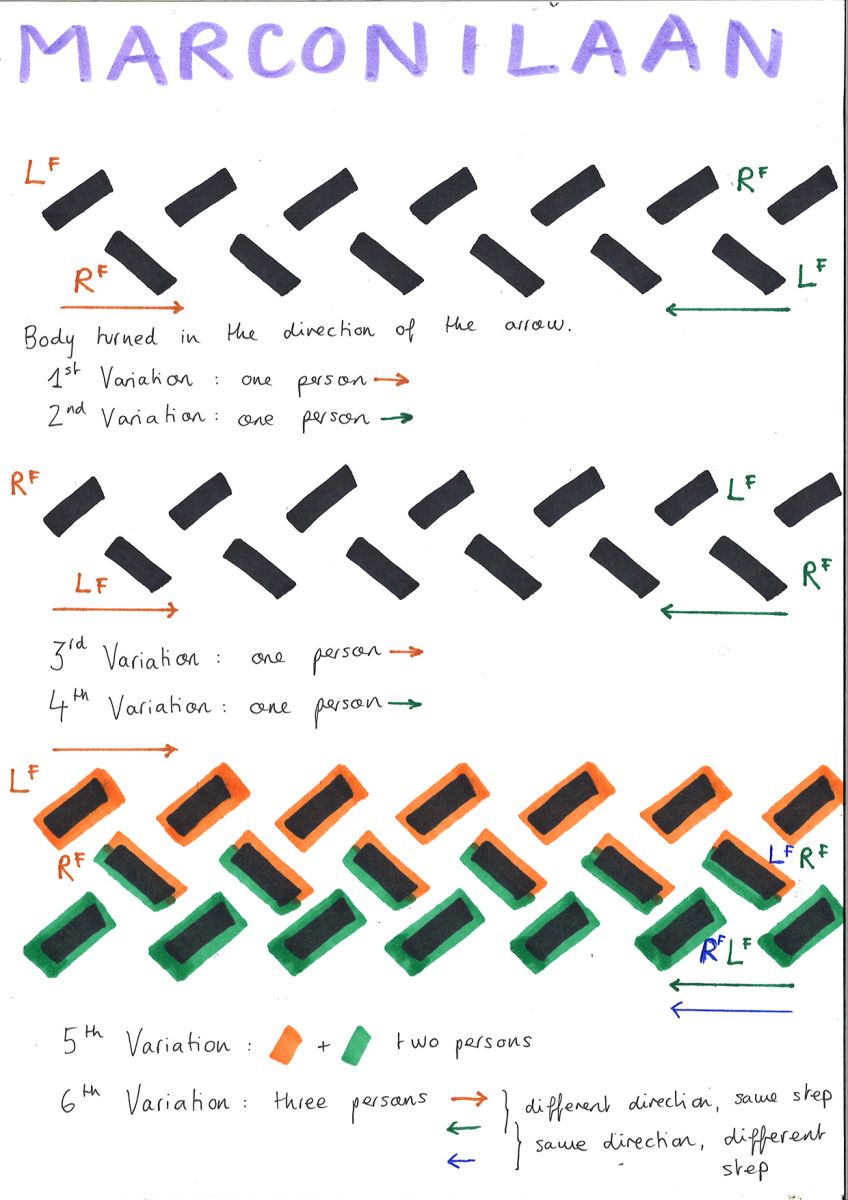 MARCONILAAN
LF
RF
RF
LF
Body turned in the direction of the arrow.
1st Variation : one person →
2nd Variation : one person →
RF
LF
LF
RF
3rd Variation : one person →
4th Variation : one person →
LF
RF
LF RF
RF LF
5th Variation : + two persons
6th Variation : three persons → } different direction, same step
← } same direction, different
← step